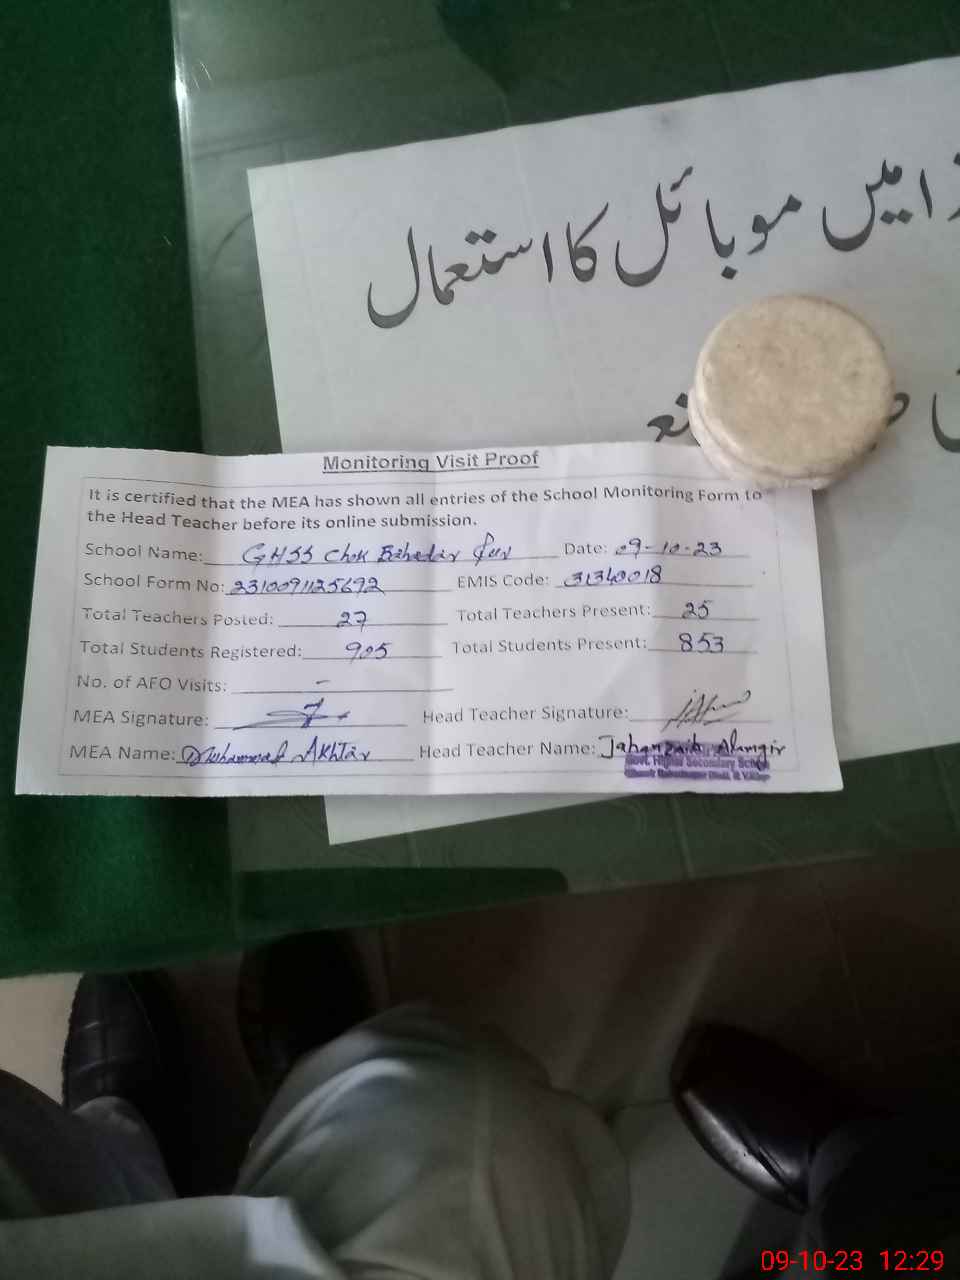 میں موبائل کا استعمال
Monitoring Visit Proof
It is certified that the MEA has shown all entries of the School Monitoring Form to
the Head Teacher before its online submission.
School Name: GHSS Chok Bahadar Pur Date: 09-10-23
School Form No: 2310091125692 EMIS Code: 31340018
Total Teachers Posted: 27 Total Teachers Present: 25
Total Students Registered: 905 Total Students Present: 853
No. of AEO Visits: -
MEA Signature: Head Teacher Signature:
MEA Name: Muhammad Akhtar Head Teacher Name: Jahanzaib Alamgir
Govt. Higher Secondary School
09-10-23 12:29